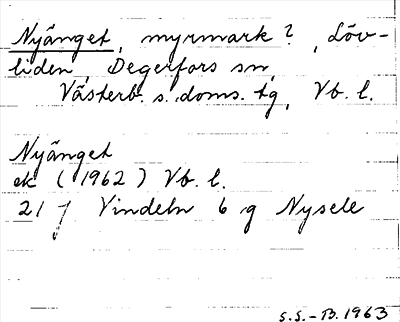 Nyänget, myrmark?, Löv-
liden, Degerfors sn,
Västerb. s. doms. tg, Vb. l.
Nyänget
ek (1962) Vb. l.
21 J Vindeln 6 g Nysele
S.S.-B. 1963